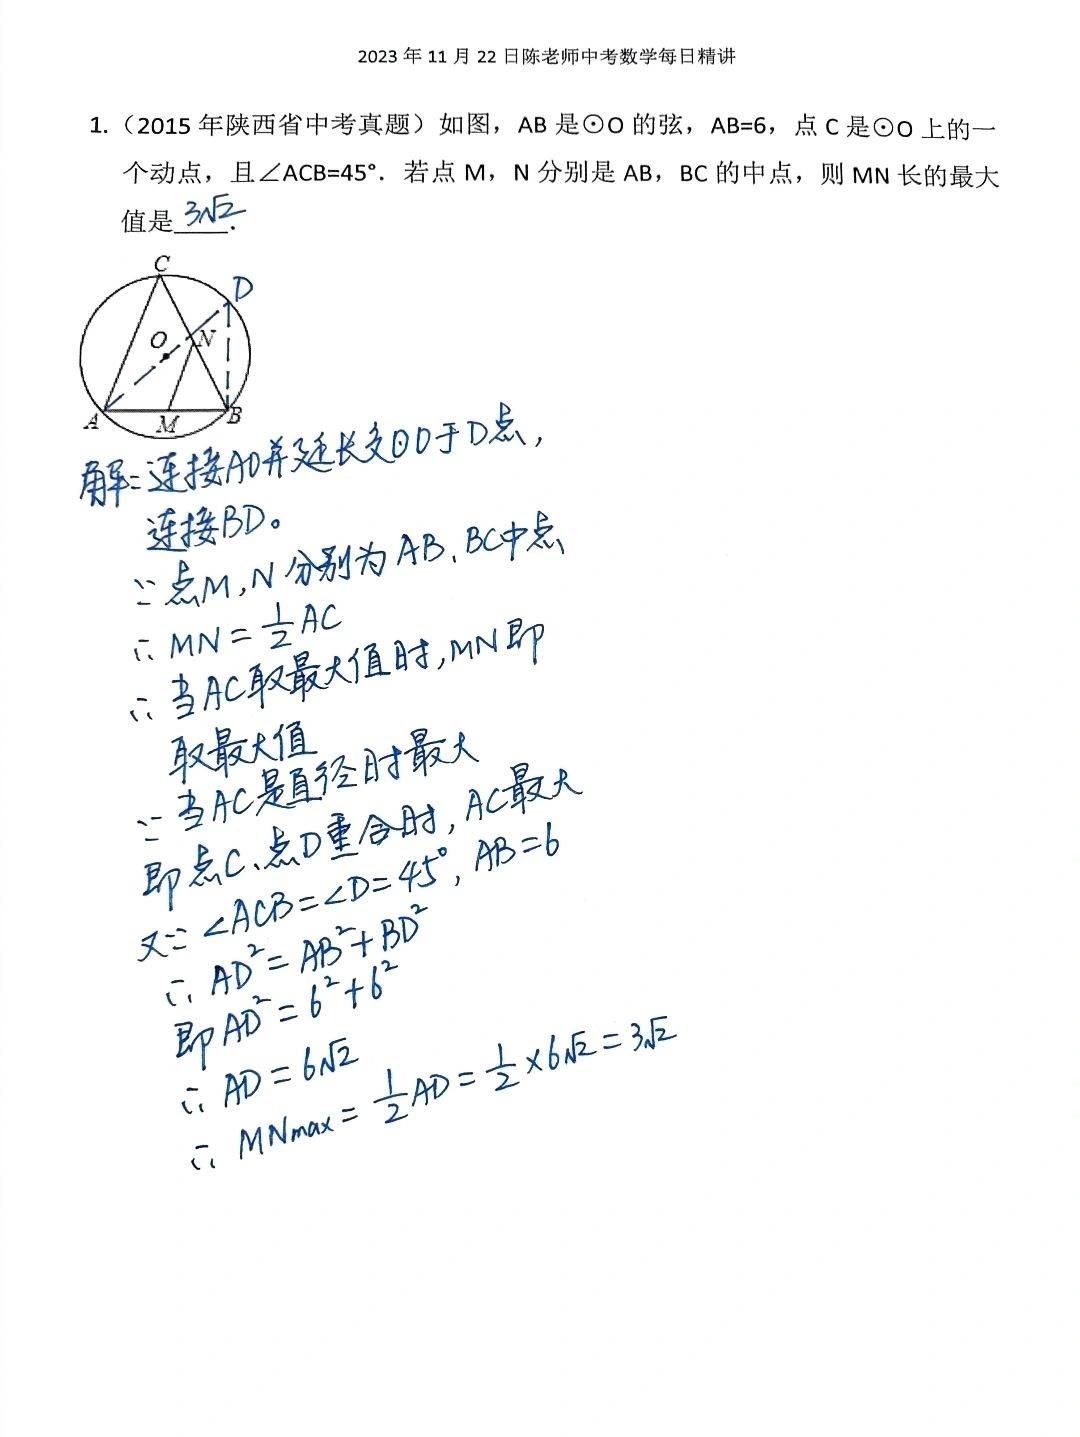 2023 年 11 月 22 日陈老师中考数学每日精讲
1.（2015 年陕西省中考真题）如图，AB 是⊙O 的弦，AB=6，点 C 是⊙O 上的一
个动点，且∠ACB=45°．若点 M，N 分别是 AB，BC 的中点，则 MN 长的最大
值是 3√2 ．
C
D
O
N
A
M
B
解：连接AO并延长交⊙O于D点，
连接BD。
∵点M，N分别为AB、BC中点
∴ MN = 1/2 AC
∴ 当AC取最大值时，MN即
取最大值
∵ 当AC是直径时最大
即点C、点D重合时，AC最大
又∵ ∠ACB=∠D=45°，AB=6
∴ AD² = AB² + BD²
即AD² = 6² + 6²
∴ AD = 6√2
∴ MNmax = 1/2 AD = 1/2 × 6√2 = 3√2